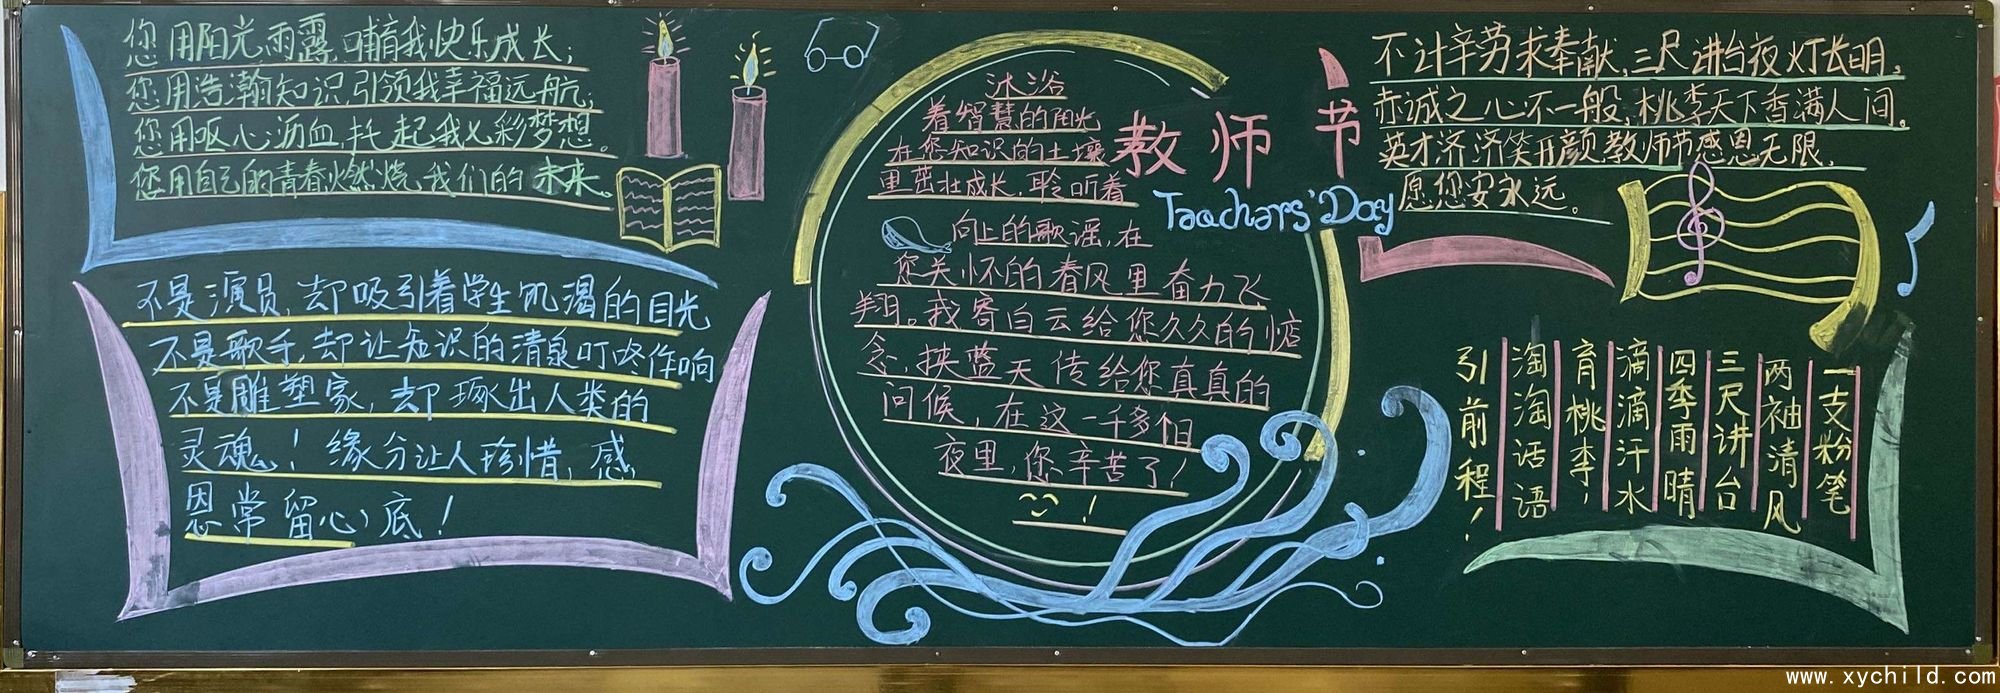 您用阳光雨露,哺育我快乐成长;
您用浩瀚知识,引领我幸福远航;
您用呕心沥血,托起我七彩梦想。
您用自己的青春燃烧,我们的未来。
不是演员,却吸引着学生饥渴的目光
不是歌手,却让知识的清泉叮咚作响
不是雕塑家,却琢出人类的
灵魂!缘分让人珍惜,感
恩常留心底!
沐浴
着智慧的阳光
在您知识的土壤
里茁壮成长,聆听着
向上的歌谣,在
您关怀的春风里奋力飞
翔。我寄白云给您久久的惦
念,挟蓝天传给您真真的
问候,在这一千多个日
夜里,您辛苦了!
!
教师节
Teachers' Day
不计辛劳求奉献,三尺讲台夜灯长明。
赤诚之心不一般,桃李天下香满人间。
英才济济笑开颜,教师节感恩无限,
愿您安永远。
一支粉笔
两袖清风
三尺讲台
四季雨晴
滴滴汗水
育桃李,
淘淘话语
引前程!
www.xychild.com